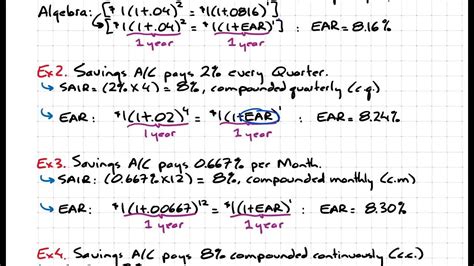 Algebra: [$1(1+.04)² = $1(1+.0816)¹]
[$1(1+.04)² = $1(1+EAR)¹] EAR = 8.16%
1 year 1 year
Ex2. Savings A/C pays 2% every Quarter.
↳ SAIR = (2% x 4) = 8%, compounded quarterly (c.q.)
↳ EAR: $1(1+.02)⁴ = $1(1+EAR)¹ EAR = 8.24%
1 year 1 year
Ex3. Savings A/C pays 0.667% per Month.
↳ SAIR: (0.667% x 12) = 8%, compounded monthly (c.m)
↳ EAR: $1(1+.00667)¹² = $1(1+EAR)¹ EAR = 8.30%
1 year 1 year
Ex4. Savings A/C pays 8% compounded continuously (c.c.)